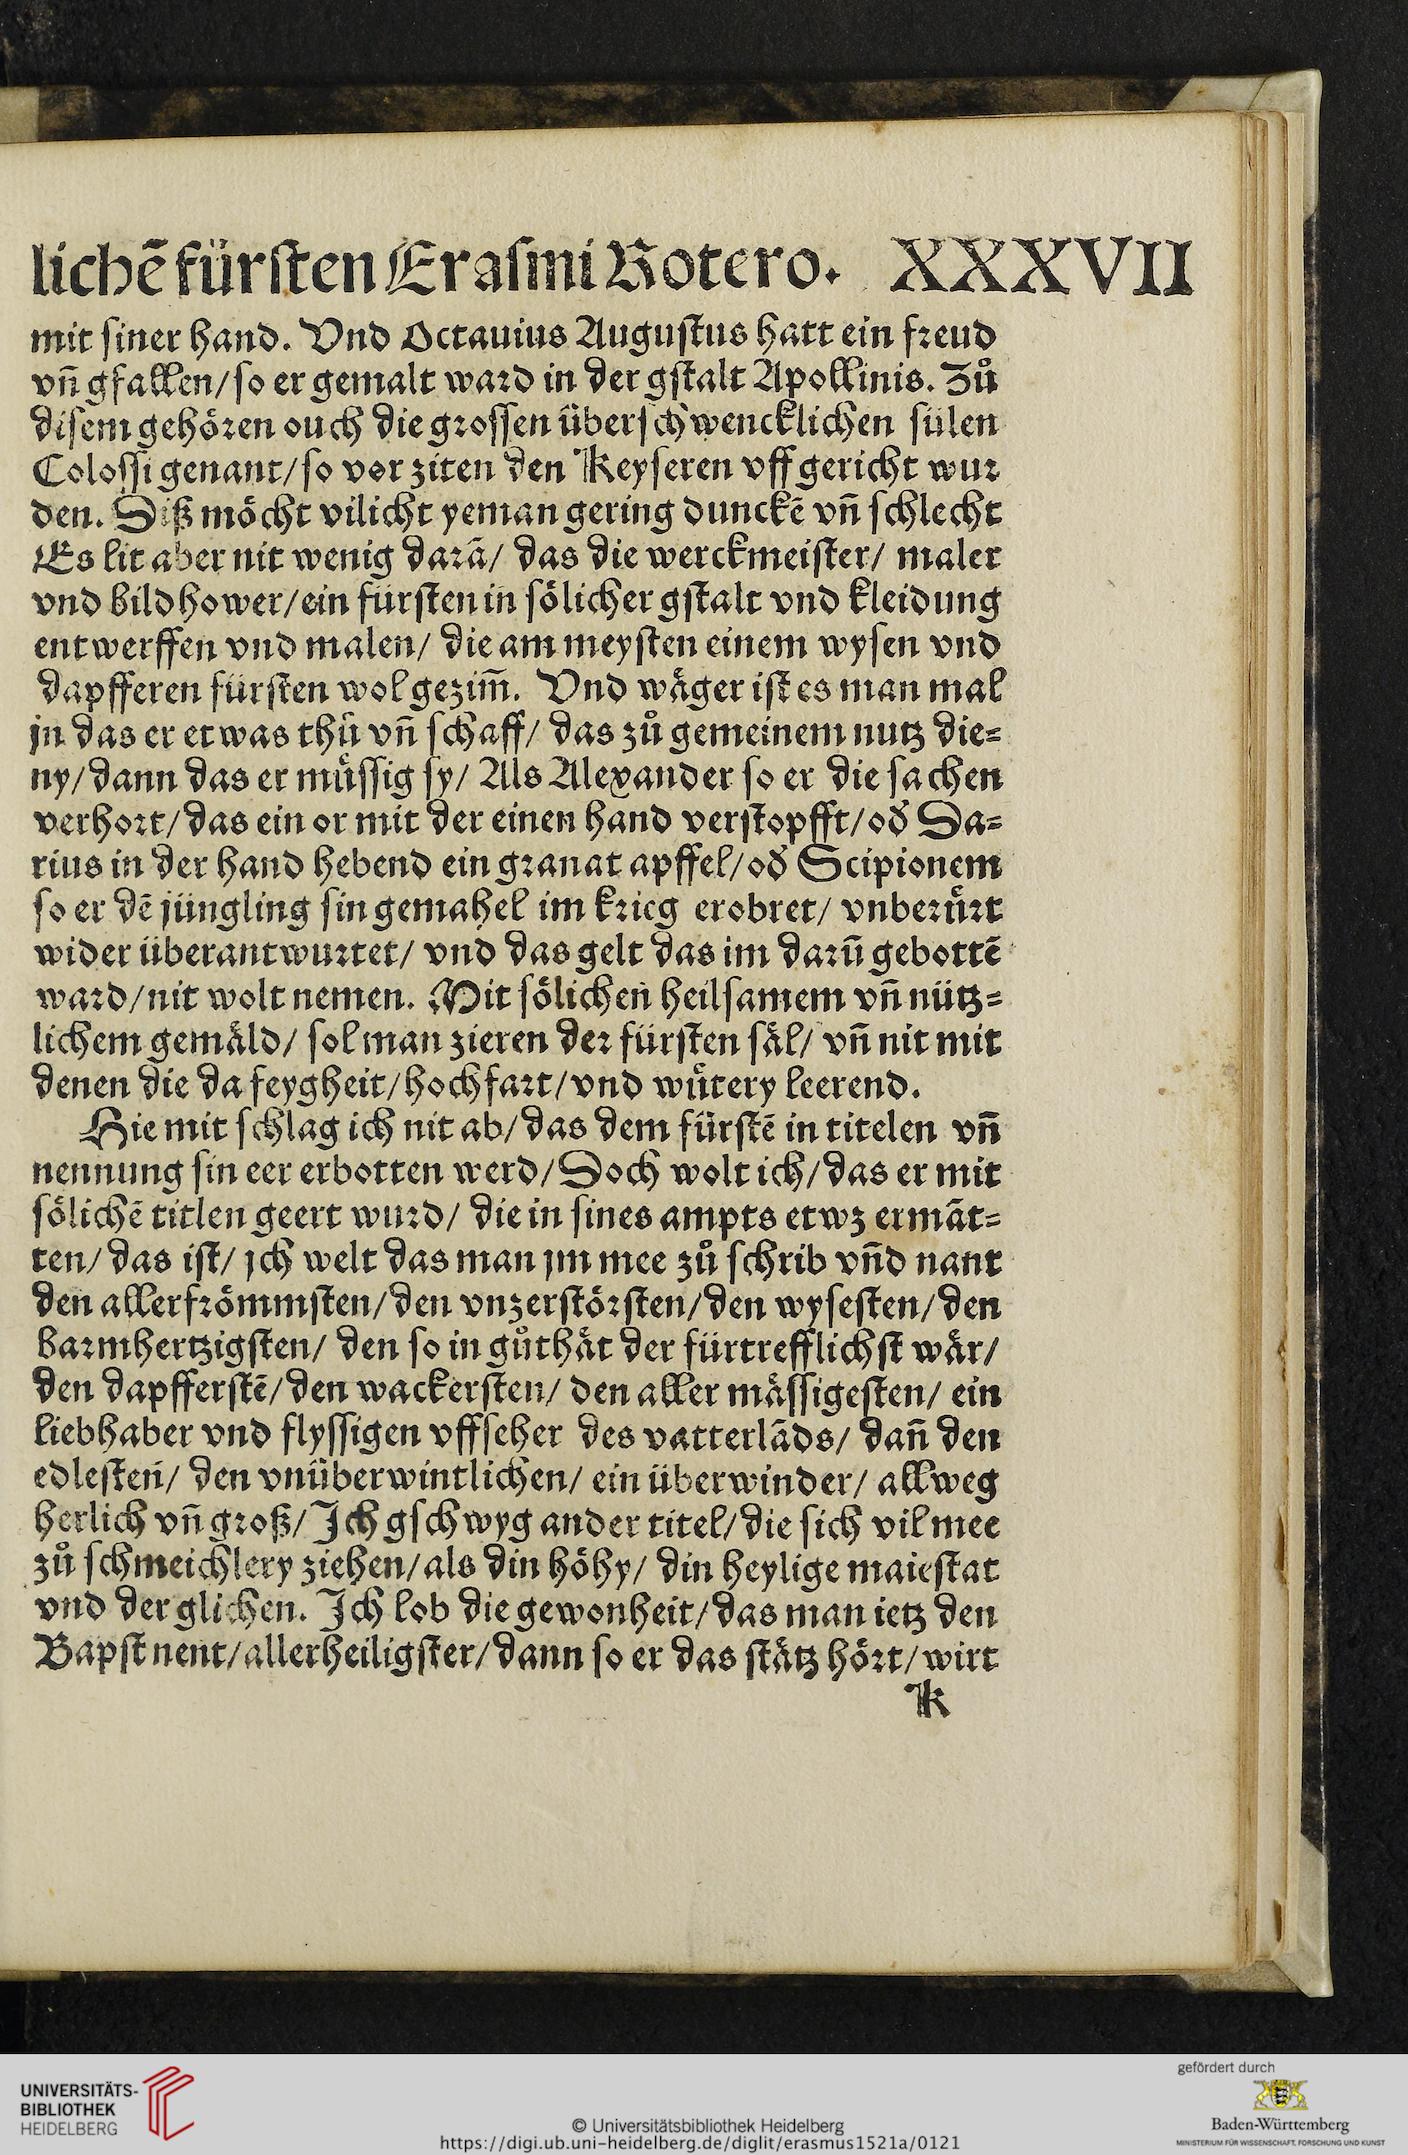 lichē fürſten Eraſmi Rotero. XXXVII
mit ſiner hand. Vnd Octauius Auguſtus hatt ein freud
vñ gfallen/ ſo er gemalt ward in der gſtalt Apollinis. Zů
diſem gehören ouch die groſſen überſchwencklichen ſülen
Coloſſi genant/ ſo vor ziten den Keyſeren vff gericht wur
den. Diß möcht vilicht yeman gering dunckē vñ ſchlecht
Es lit aber nit wenig darā/ das die werckmeiſter/ maler
vnd bildhower/ ein fürſten in ſölicher gſtalt vnd kleidung
entwerffen vnd malen/ die am meyſten einem wyſen vnd
dapfferen fürſten wol gezim̄. Vnd wäger iſt es man mal
jn das er etwas thů vñ ſchaff/ das zů gemeinem nutz die=
ny/ dann das er müſſig ſy/ Als Alexander ſo er die ſachen
verhort/ das ein or mit der einen hand verſtopfft/ od̕ Da=
rius in der hand hebend ein granat apffel/ od̕ Scipionem
ſo er dē jüngling ſin gemahel im krieg erobret/ vnberürt
wider überantwurtet/ vnd das gelt das im darū gebottē
ward/ nit wolt nemen. Mit ſölichen heilſamem vñ nütz=
lichem gemäld/ ſol man zieren der fürſten ſäl/ vñ nit mit
denen die da feygheit/ hochfart/ vnd wütery leerend.
Hie mit ſchlag ich nit ab/ das dem fürſtē in titelen vñ
nennung ſin eer erbotten werd/ Doch wolt ich/ das er mit
ſölichē titlen geert wurd/ die in ſines ampts etwz ermāt=
ten/ das iſt/ jch welt das man jm mee zů ſchrib vñd nant
den allerfrömmſten/ den vnzerſtörſten/ den wyſeſten/ den
barmhertzigſten/ den ſo in gůthät der fürtrefflichſt wär/
den dapfferſtē/ den wackerſten/ den aller mäſſigeſten/ ein
liebhaber vnd flyſſigen vffſeher des vatterlāds/ dañ den
edleſten/ den vnüberwintlichen/ ein überwinder/ allweg
herlich vñ groß/ Ich gſchwyg ander titel/ die ſich vil mee
zů ſchmeichlery ziehen/ als din höhy/ din heylige maieſtat
vnd der glichen. Ich lob die gewonheit/ das man ietz den
Bapſt nent/ allerheiligſter/ dann ſo er das ſtätz hört/ wirt
K
UNIVERSITÄTS-
BIBLIOTHEK
HEIDELBERG
© Universitätsbibliothek Heidelberg
https://digi.ub.uni-heidelberg.de/diglit/erasmus1521a/0121
gefördert durch
Baden-Württemberg
MINISTERIUM FÜR WISSENSCHAFT, FORSCHUNG UND KUNST